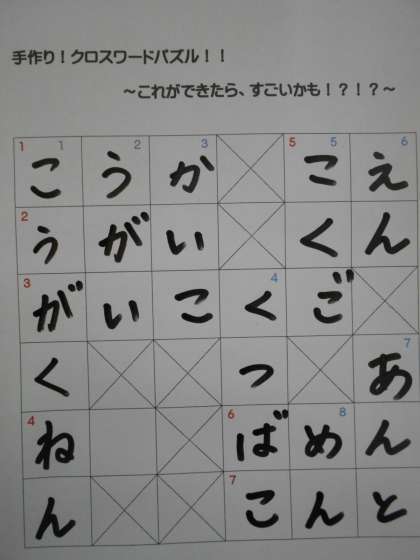 手作り！クロスワードパズル！！
～これができたら、すごいかも！？！？～
1 1 2 3 5 5 6
こ う か こ え
2
う が い く ん
3 4
が い こ く ご
7
く つ あ
4 6 8
ね ば め ん
7
ん こ ん と